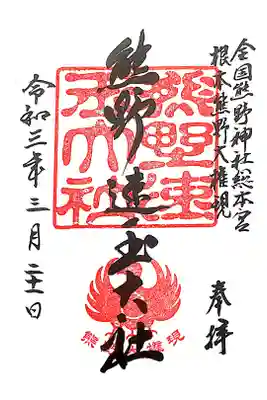 全国熊野神社総本宮
根本熊野大権現
奉拝
熊野速玉大社
熊野速玉大社
熊権現
令和三年三月二十一日